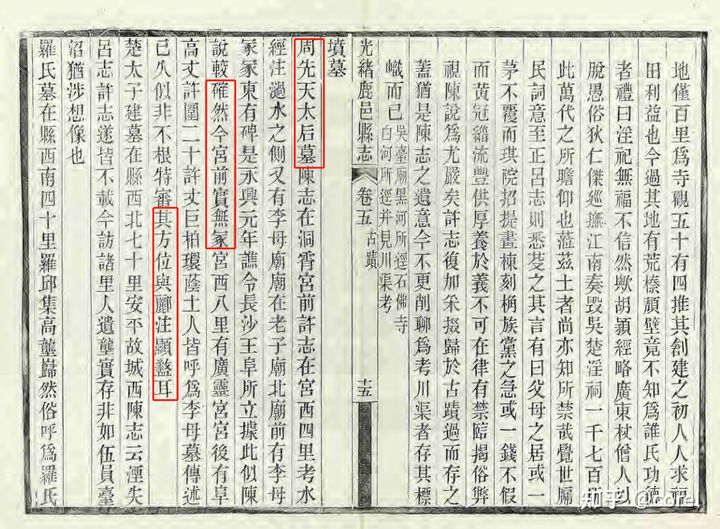 地僅百里爲寺觀五十有四推其創建之初人人求市
田利益也今過其地有荒榛頹壁竟不知爲誰氏功德
者禮曰淫祀無福不信然歟胡穎經略廣東杖僧人以
脫愚俗狄仁傑巡撫江南奏毀吳楚淫祠一千七百
此萬代之所瞻仰也蒞茲土者尚亦知所禁哉覺世牖
民詞意至正呂志則悉芟之其言有曰父母之居或一
茅不覆而琪院招提畫棟刻桷族黨之急或一錢不假
而黃冠緇流豐供厚養於義不可在律有禁揭俗弊
視陳說爲尤嚴矣許志復加采掇歸於古蹟過而存之
蓋猶是陳志之遺意今不更削聊爲考川渠者存其標
幟而已
吳臺廟黑河所經石佛寺
白河所逕并見川渠考
光緒鹿邑縣志
卷五
古蹟
十五
墳墓
周先天太后墓陳志在洞霄宮前許志在宮西四里考水
經注濄水之側又有李母廟廟在老子廟北廟前有李母
冢冢東有碑是永興元年譙令長沙王阜所立據此似陳
說較確然今宮前實無冢宮西八里有廣靈宮宮後有阜
高丈許圍二十許丈巨柏環蔭土人皆呼爲李母墓傳述
已久似非不根特審其方位與酈注顯盭耳
楚太子建墓在縣西北七十里安平故城西陳志云湮失
呂志許志遂皆不載今訪諸里人遺壟實存非如伍員臺
沼猶涉想像也
羅氏墓在縣西南四十里羅邱集高壟巋然俗呼爲羅氏
知乎 @core